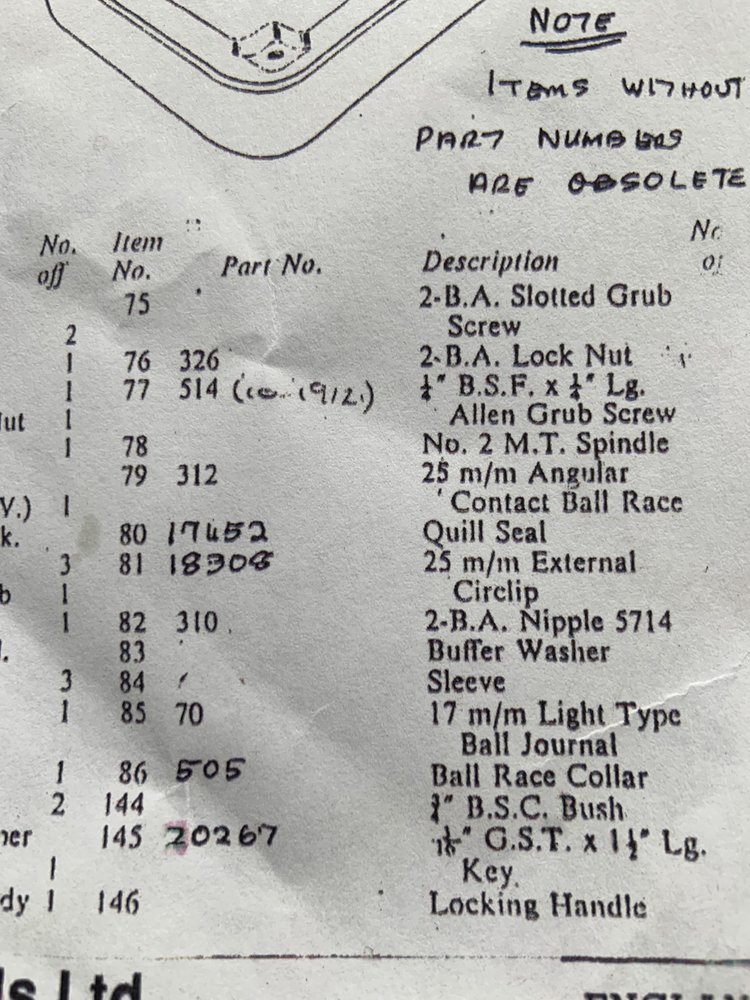 NOTE
ITEMS WITHOUT
PART NUMBERS
ARE OBSOLETE
No. Item No
off No. Part No. Description
75 2-B.A. Slotted Grub
2 Screw
1 76 326 2-B.A. Lock Nut
1 77 514 ¼" B.S.F. x ¼" Lg.
1 Allen Grub Screw
1 78 No. 2 M.T. Spindle
79 312 25 m/m Angular
V.) 1 Contact Ball Race
k. 80 17452 Quill Seal
3 81 18308 25 m/m External
b 1 Circlip
1 82 310 2-B.A. Nipple 5714
83 Buffer Washer
3 84 Sleeve
1 85 70 17 m/m Light Type
Ball Journal
1 86 505 Ball Race Collar
2 144 B.S.C. Bush
145 20267 G.S.T. x 1½" Lg.
1 Key
dy 1 146 Locking Handle
Ltd